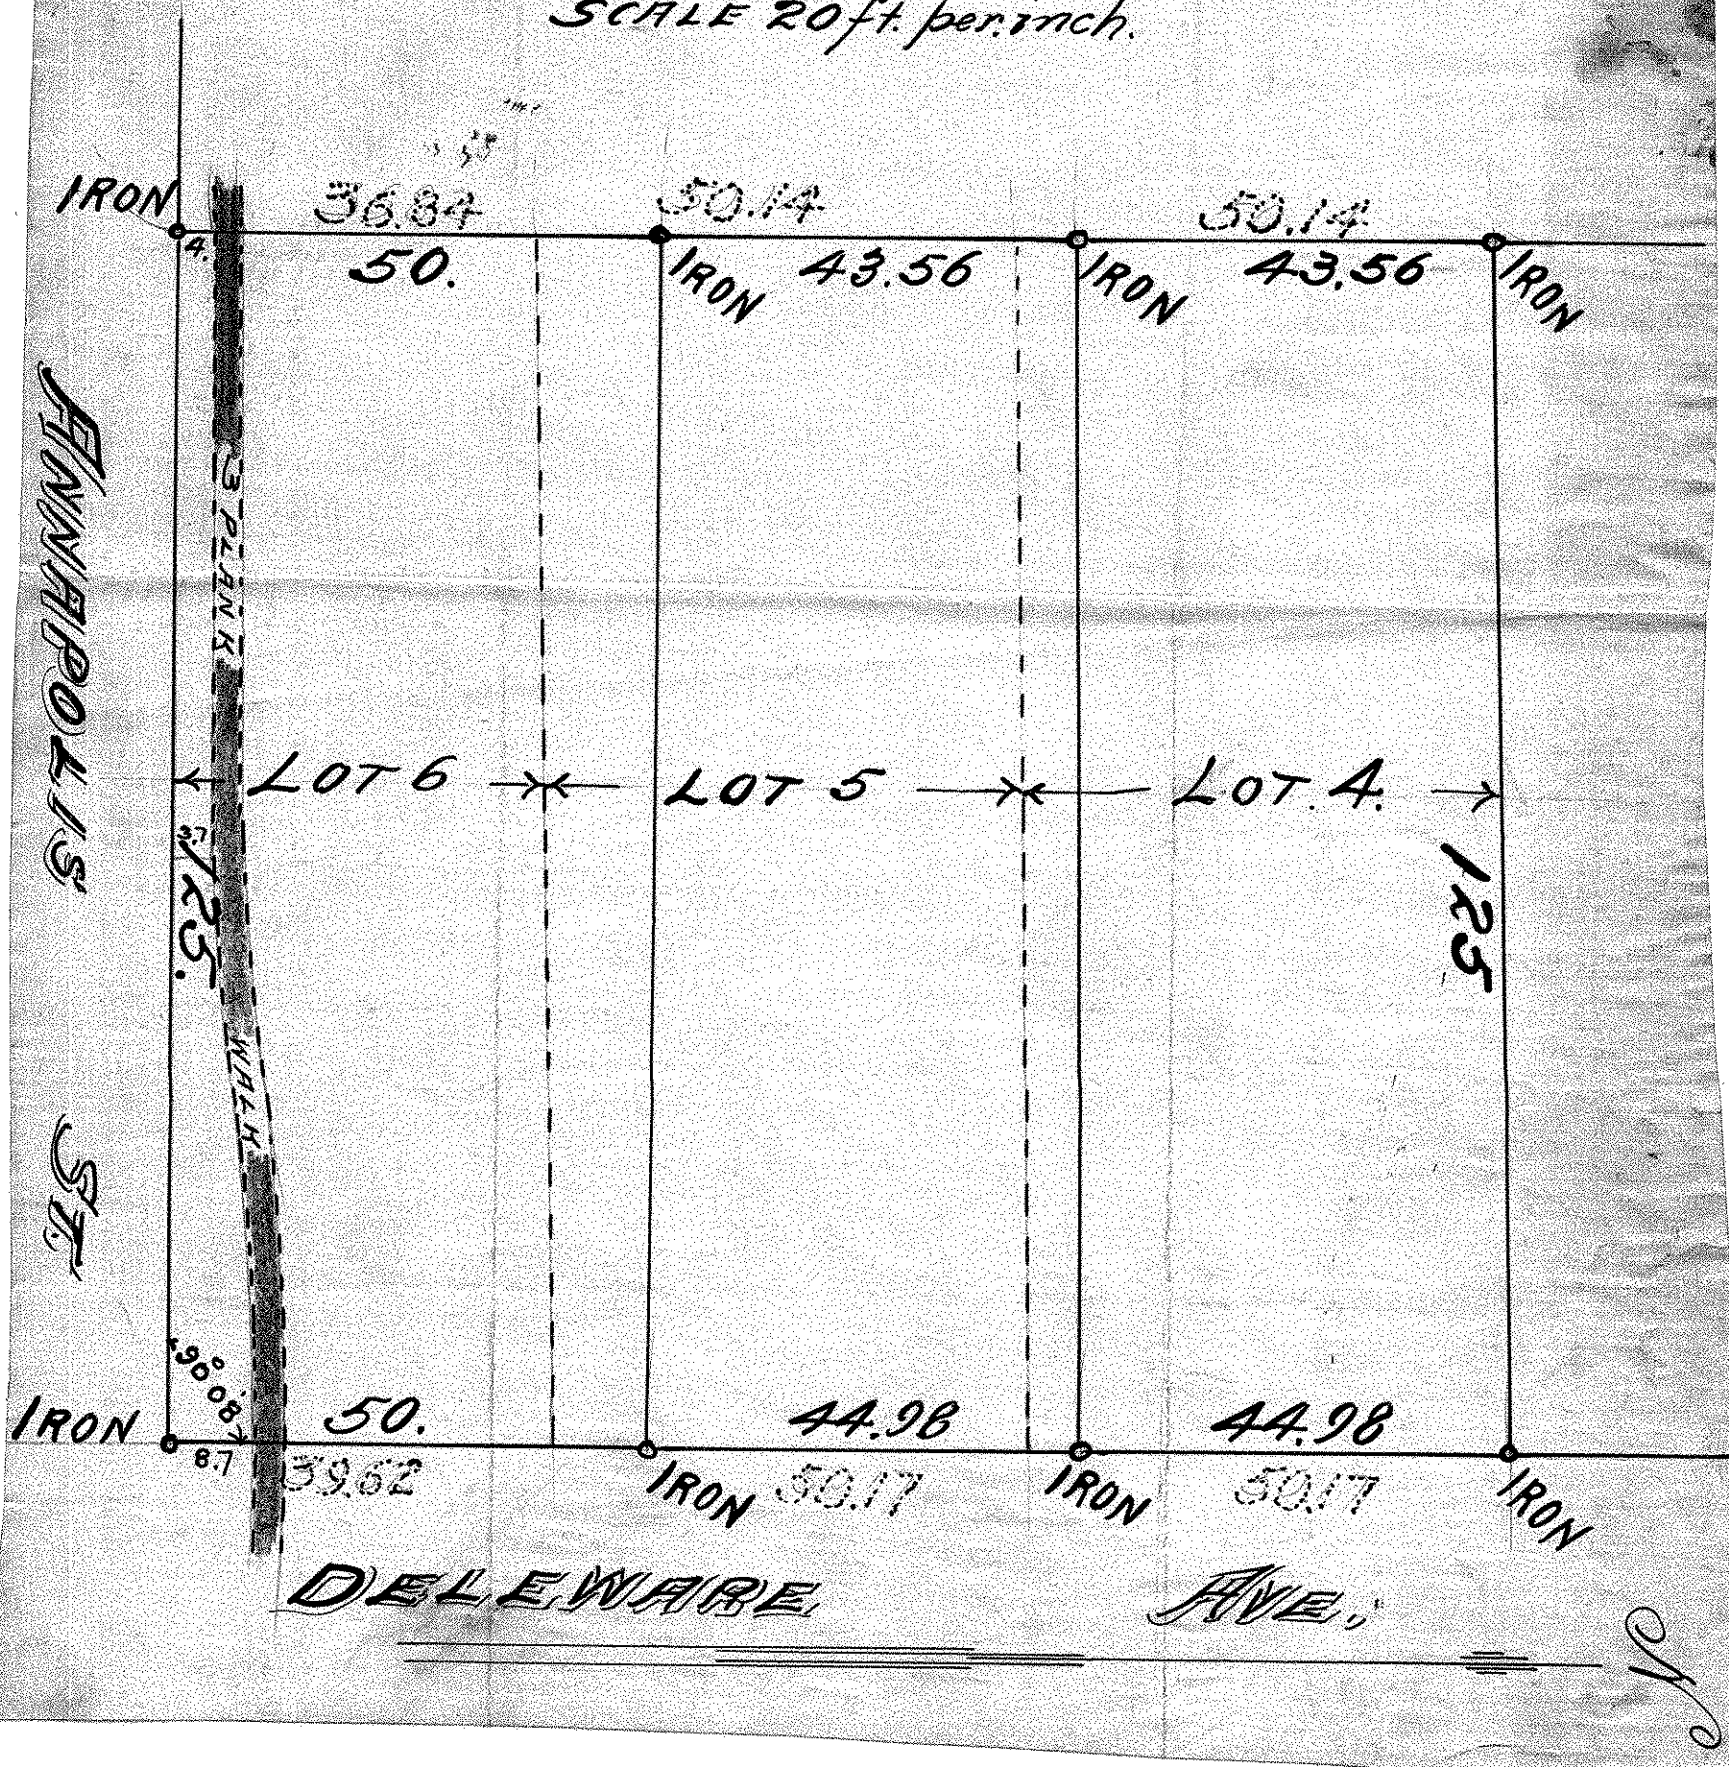 SCALE 20 ft. per. inch.
IRON
36.84
50.14
50.14
4.
50.
IRON
43.56
IRON
43.56
IRON
ANNAPOLIS ST.
3 PLANK WALK
LOT 6
LOT 5
LOT. 4.
3.7
125.
125
90° 08'
IRON
50.
44.98
44.98
8.7
39.62
IRON
50.17
IRON
50.17
IRON
DELEWARE AVE.